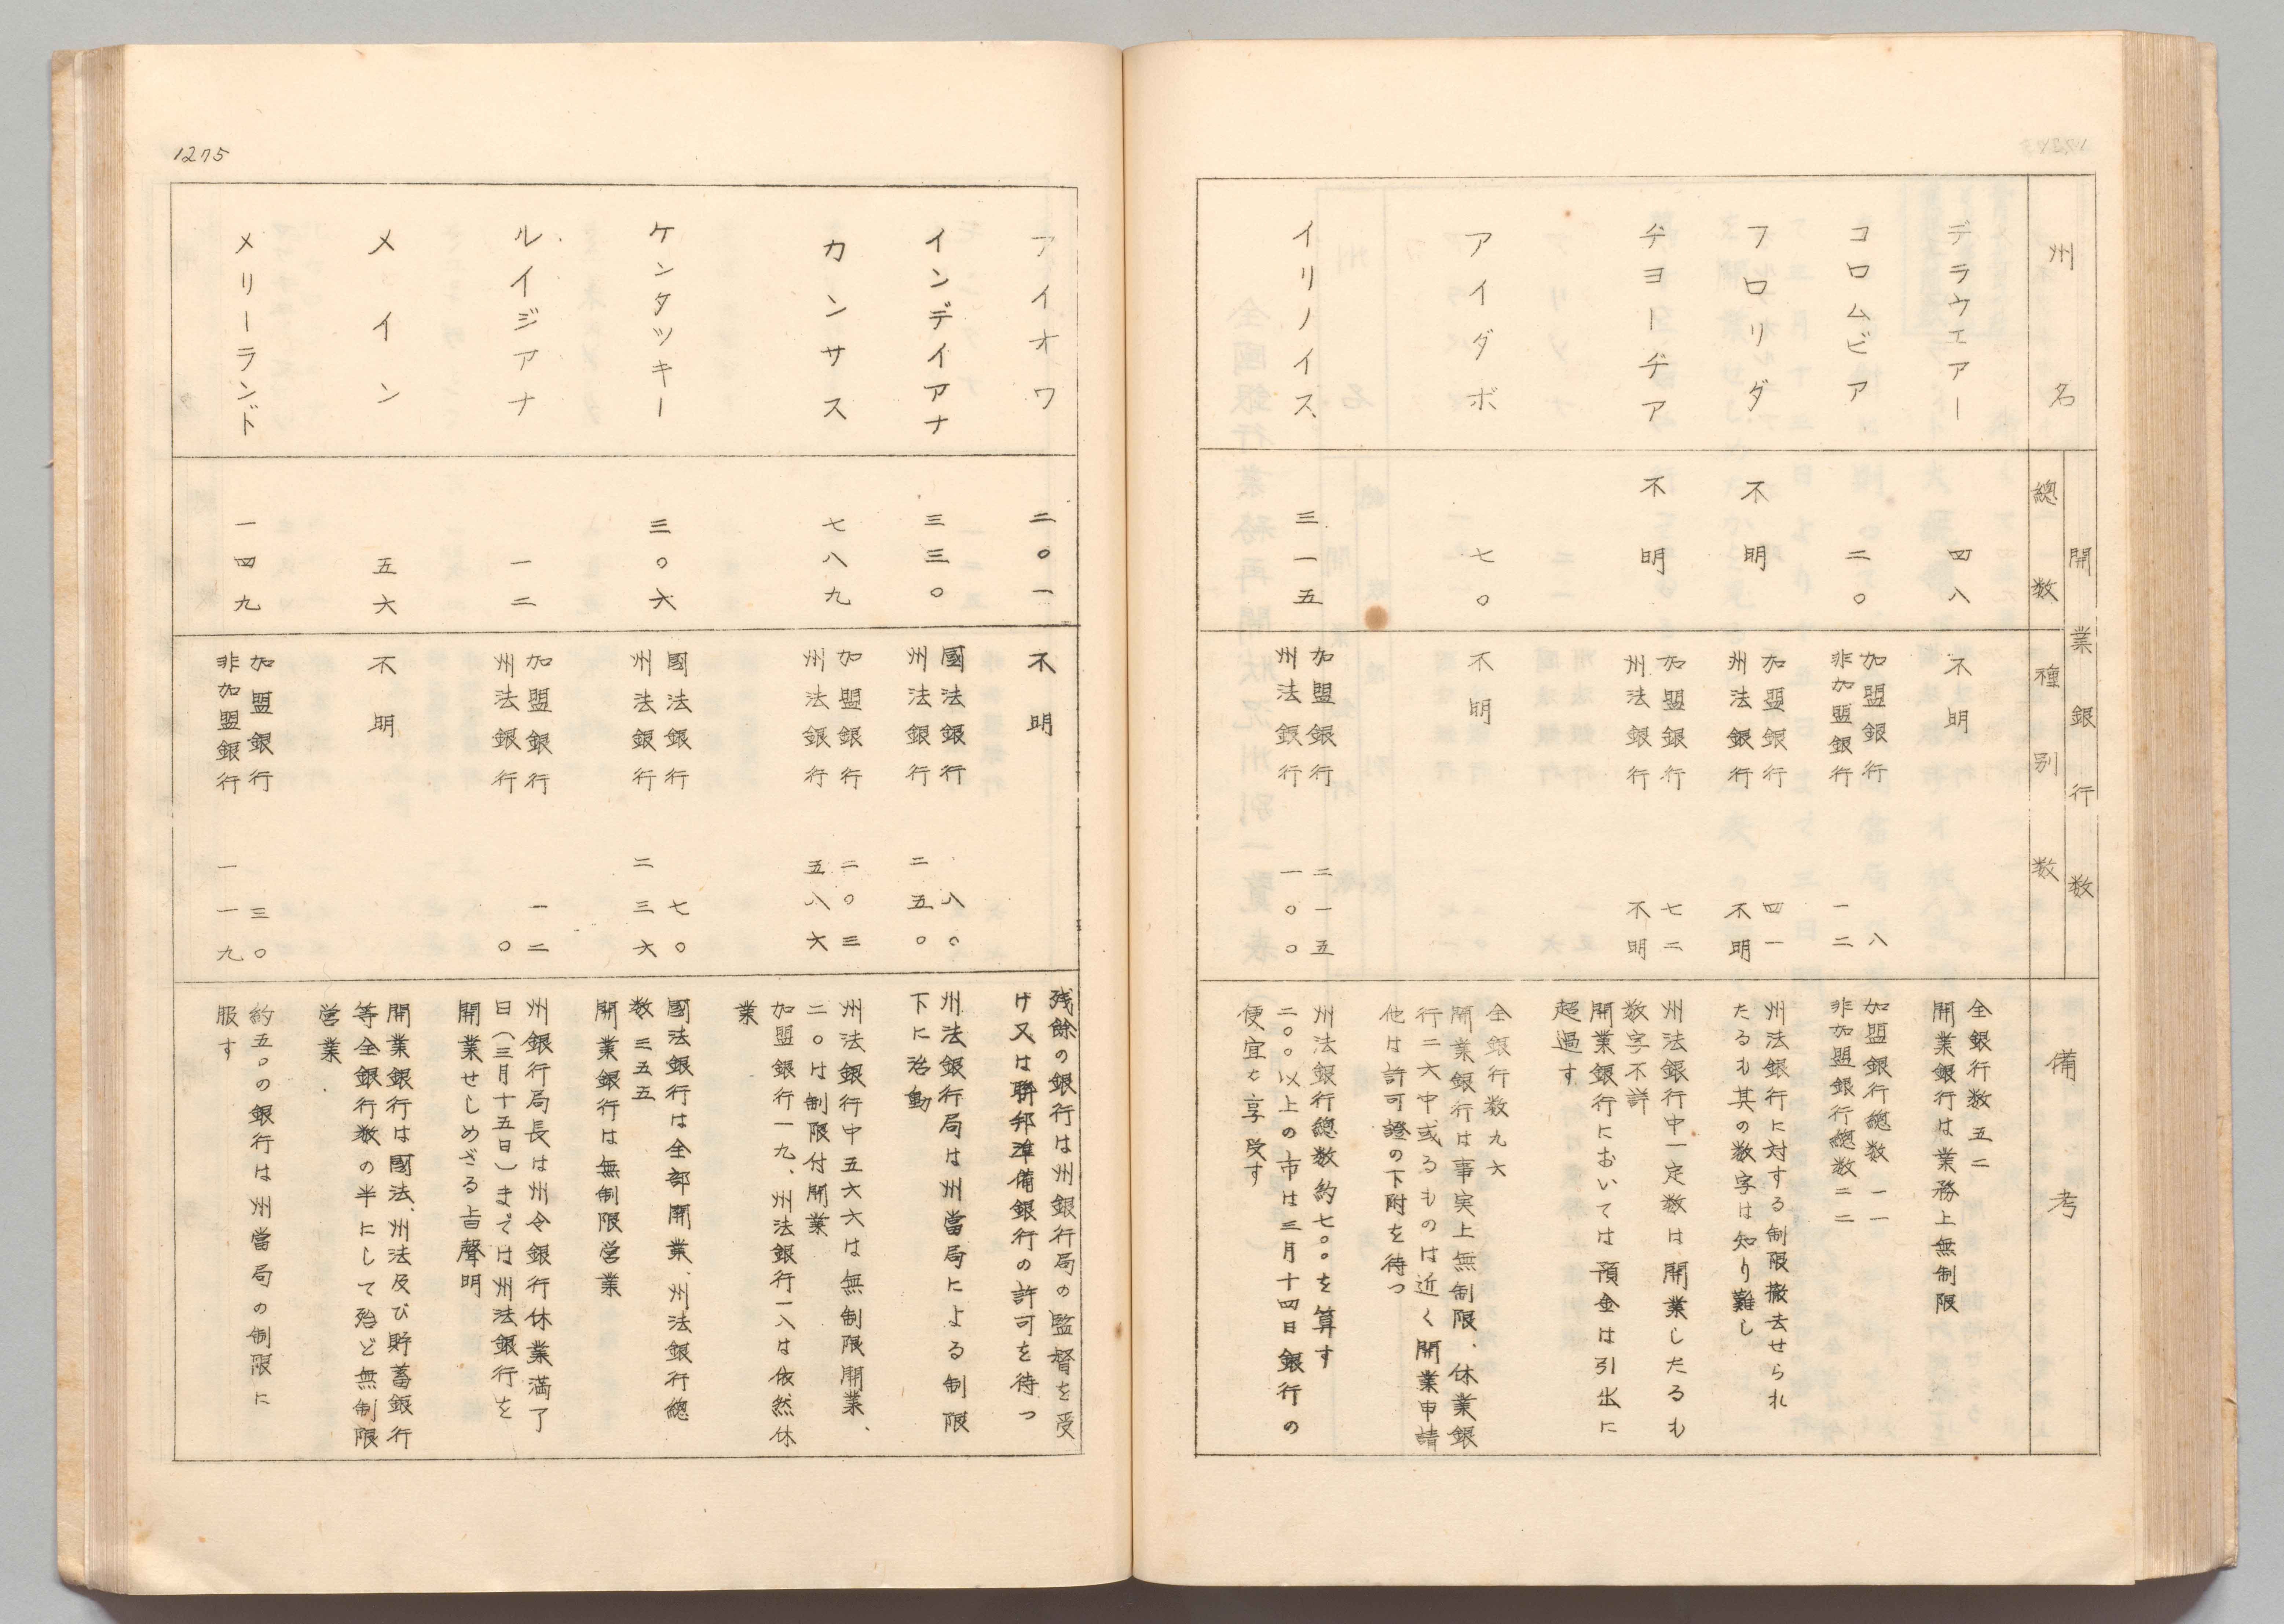 州名
開業銀行数
總数
種別数
備考
デラウエアー
四八
不明
全銀行数五二
開業銀行は業務上無制限
コロムビア
二〇
加盟銀行 八
非加盟銀行 一二
加盟銀行總数 一一
非加盟銀行總数二二
フロリダ
不明
加盟銀行 四一
州法銀行 不明
州法銀行に対する制限撤去せられ
たるも其の数字は知り難し
ヂヨーヂア
不明
加盟銀行 七二
州法銀行 不明
州法銀行中一定数は開業したるも
数字不詳
開業銀行においては預金は引出に
超過す
アイダボ
七〇
不明
全銀行数九六
開業銀行は事実上無制限、休業銀
行二六中或るものは近く開業申請
他は許可證の下附を待つ
イリノイス
三一五
加盟銀行 二一五
州法銀行 一〇〇
州法銀行總数約七〇〇を算す
二〇〇以上の市は三月十四日銀行の
便宜を享受す
1275
アイオワ
二〇一
不明
残餘の銀行は州銀行局の監督を受
け又は聯邦準備銀行の許可を待つ
インデイアナ
三三〇
國法銀行 八〇
州法銀行 二五〇
州法銀行局は州當局による制限
下に活動
カンサス
七八九
加盟銀行 二〇三
州法銀行 五八六
州法銀行中五六六は無制限開業、
二〇は制限付開業
加盟銀行一九、州法銀行一八は依然休
業
ケンタツキー
三〇六
國法銀行 七〇
州法銀行 二三六
國法銀行は全部開業、州法銀行總
数三五五
開業銀行は無制限営業
ルイジアナ
一二
加盟銀行 一二
州法銀行 〇
州銀行局長は州令銀行休業満了
日(三月十五日)までは州法銀行を
開業せしめざる旨聲明
メイン
五六
不明
開業銀行は國法、州法及び貯蓄銀行
等全銀行数の半にして殆ど無制限
営業
メリーランド
一四九
加盟銀行 三〇
非加盟銀行 一一九
約五〇の銀行は州當局の制限に
服す